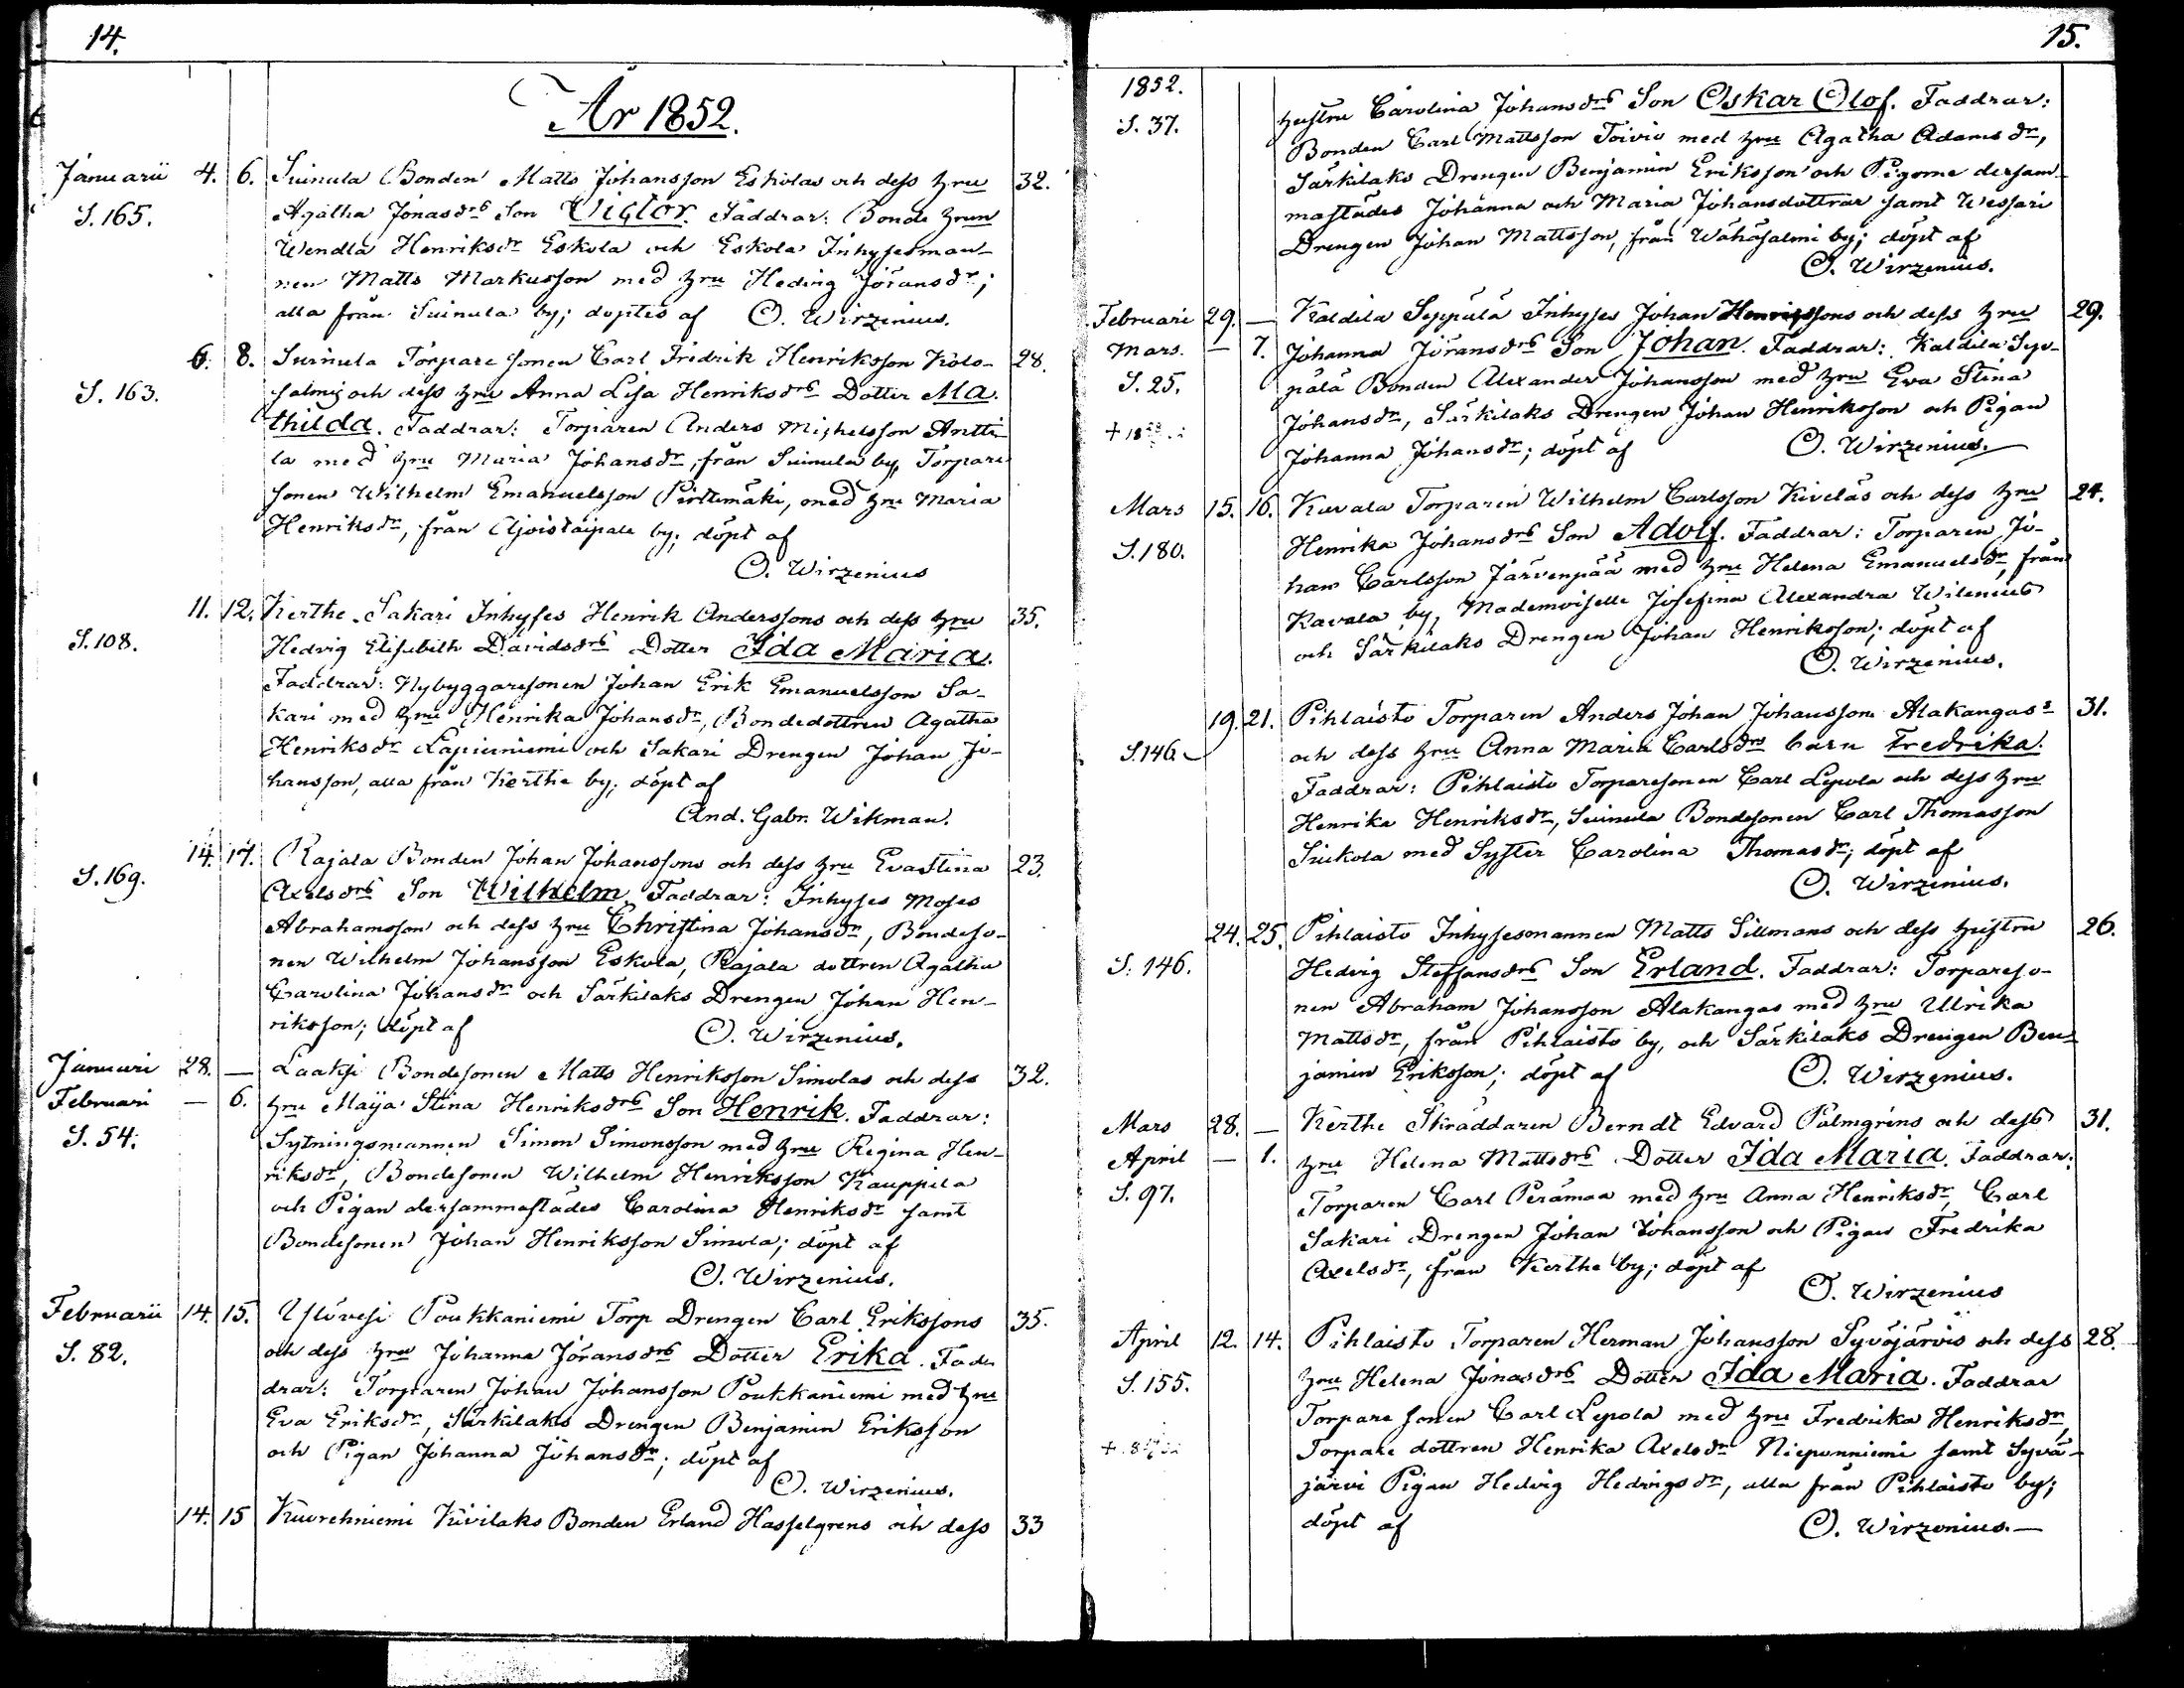 14.
År 1852.
Januarii 4. 6. Suinula Bonden Matts Johansson Eskolas och dess hru 32.
S. 165. Agatha Jonasdrs Son Victor. Faddrar: Bonde hrun
Wendla Henriksdr Eskola och Eskola Inhysesman-
nen Matts Markusson med hru Hedvig Jöransdr;
alla från Suinula by; döptes af O. Wirzenius.
6. 8. Suinula Torparesonen Carl Fredrik Henriksson Kolo- 28.
S. 163. salmis och dess hru Anna Lisa Henriksdrs Dotter Ma-
thilda. Faddrar: Torparen Anders Michelsson Antti-
la med hru Maria Johansdr, från Suinula by, Torpare
sonen Wilhelm Emanuelsson Pirttimäki, med hru Maria
Henriksdr, från Ajoistaipale by; döpt af
O. Wirzenius
11. 12. Kerthe Sakari Inhyses Henrik Anderssons och dess hru 35.
S. 108. Hedvig Elisabeth Davidsdrs Dotter Ida Maria.
Faddrar: Nybyggaresonen Johan Erik Emanuelsson Sa-
kari med hru Henrika Johansdr, Bondedottren Agatha
Henriksdr Lapinniemi och Sakari Drengen Johan Jo-
hansson, alla från Kerthe by; döpt af
And. Gabr. Wikman.
14. 17. Rajala Bonden Johan Johanssons och dess hru Eva Stina 23.
S. 169. Axelsdrs Son Wilhelm. Faddrar: Inhyses Moses
Abrahamsson och dess hru Christina Johansdr, Bondeso-
nen Wilhelm Johansson Eskola, Rajala dottren Agatha
Carolina Johansdr och Särkilaks Drengen Johan Hen-
riksson; döpt af O. Wirzenius.
Januari 28. — Laaksi Bondesonen Matts Henriksson Simolas och dess 32.
Februari — 6. hru Maija Stina Henriksdrs Son Henrik. Faddrar:
S. 54. Sytningsmannen Simon Simonsson med hru Regina Hen-
riksdr, Bondesonen Wilhelm Henriksson Kauppila
och Pigan dersammastädes Carolina Henriksdr samt
Bondesonen Johan Henriksson Simola; döpt af
O. Wirzenius.
Februarii 14. 15. Ylövesi Poukkaniemi Torp Drengen Carl Erikssons 35.
S. 82. och dess hru Johanna Jöransdrs Dotter Erika. Fad-
drar: Torparen Johan Johansson Poukkaniemi med hru
Eva Eriksdr, Särkilaks Drengen Benjamin Eriksson
och Pigan Johanna Johansdr; döpt af
O. Wirzenius.
14. 15 Kuorehniemi Kivilaks Bonden Erland Hasselgrens och dess 33
15.
1852. hustru Carolina Johansdrs Son Oskar Olof. Faddrar:
S. 37. Bonden Carl Mattsson Toivio med hru Agatha Adamsdr,
Särkilaks Drengen Benjamin Eriksson och Pigorne dersam-
mastädes Johanna och Maria Johansdöttrar samt Wessari
Drengen Johan Mattsson, från Wähäsalmi by; döpt af
O. Wirzenius.
Februari 29. — Kaldila Seppälä Inhyses Johan Henrikssons och dess hru 29.
Mars. — 7. Johanna Jöransdrs Son Johan. Faddrar: Kaldila Sep-
S. 25. pälä Bonden Alexander Johansson med hru Eva Stina
Johansdr, Särkilaks Drengen Johan Henriksson och Pigan
Johanna Johansdr; döpt af O. Wirzenius.
Mars 15. 16. Kavala Torparen Wilhelm Carlsson Kiveläs och dess hru 24.
S. 180. Henrika Johansdrs Son Adolf. Faddrar: Torparen Jo-
han Carlsson Järvenpää med hru Helena Emanuelsdr, från
Kavala by, Mademoiselle Josefina Alexandra Wilenius
och Särkilaks Drengen Johan Henriksson; döpt af
O. Wirzenius.
19. 21. Pihlaisto Torparen Anders Johan Johansson Alakangas's 31.
S. 146. och dess hru Anna Maria Carlsdrs barn Fredrika.
Faddrar: Pihlaisto Torparesonen Carl Lepola och dess hru
Henrika Henriksdr, Suinula Bondesonen Carl Thomasson
Suikola med Syster Carolina Thomasdr; döpt af
O. Wirzenius.
24. 25. Pihlaisto Inhysesmannen Matts Sillmans och dess hustru 26.
S. 146. Hedvig Steffansdrs Son Erland. Faddrar: Torpareso-
nen Abraham Johansson Alakangas med hru Ulrika
Mattsdr, från Pihlaisto by, och Särkilaks Drengen Ben-
jamin Eriksson; döpt af O. Wirzenius.
Mars 28. — Kerthe Skräddaren Berndt Edvard Palmgrens och dess 31.
April — 1. hru Helena Mattsdrs Dotter Ida Maria. Faddrar:
S. 97. Torparen Carl Perämaa med hru Anna Henriksdr, Carl
Sakari Drengen Johan Johansson och Pigan Fredrika
Axelsdr, från Kerthe by; döpt af
O. Wirzenius
April 12. 14. Pihlaisto Torparen Herman Johansson Syväjärvis och dess 28.
S. 155. hru Helena Jonasdrs Dotter Ida Maria. Faddrar
Torpare sonen Carl Lepola med hru Fredrika Henriksdr,
Torpare dottren Henrika Axelsdr Nieponniemi samt Syvä-
järvi Pigan Hedvig Hedvigsdr, alla från Pihlaisto by;
döpt af O. Wirzenius.—